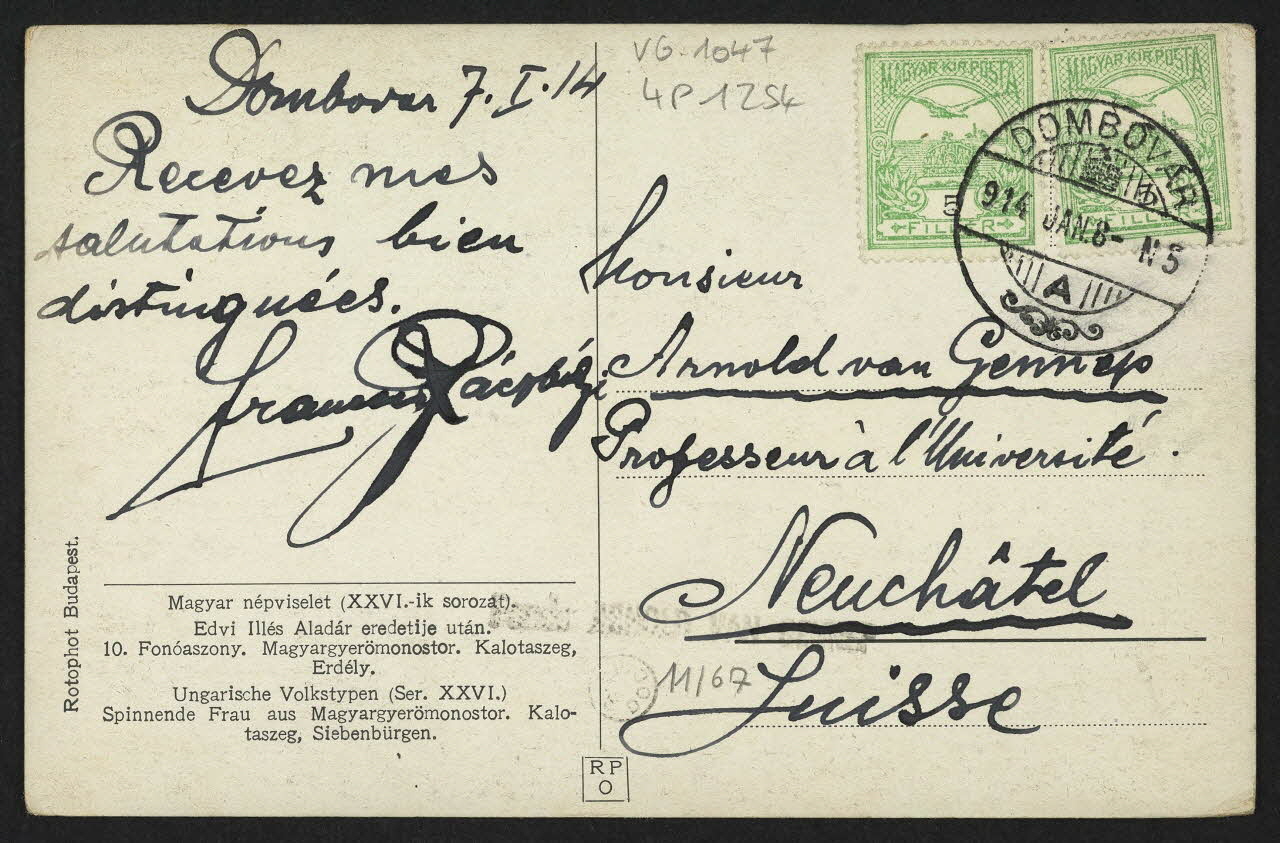 Dombovar 7. I. 14
Recevez mes
salutations bien
distinguées.
VG. 1047
4P 1254
MAGYAR KIR. POSTA
MAGYAR KIR. POSTA
5
FILLÉR
FILLÉR
DOMBÓVÁR
914 JAN. 8 - N 5
A
Monsieur
Arnold van Gennep
Professeur à l'Université.
Neuchâtel
Suisse
11/67
Rotophot Budapest.
Magyar népviselet (XXVI.-ik sorozat).
Edvi Illés Aladár eredetije után.
10. Fonóaszony. Magyargyerömonostor. Kalotaszeg,
Erdély.
Ungarische Volkstypen (Ser. XXVI.)
Spinnende Frau aus Magyargyerömonostor. Kalo-
taszeg, Siebenbürgen.
RP
O